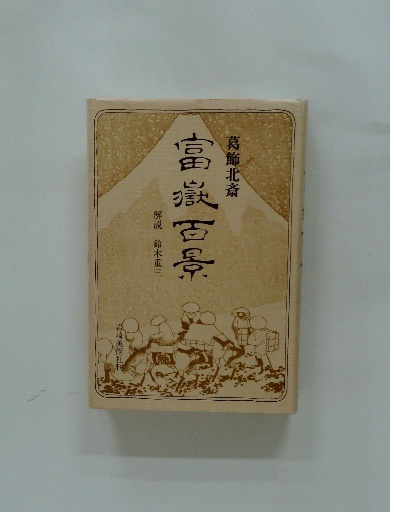 葛飾北斎
富嶽百景
解説　鈴木重三
岩崎美術社刊